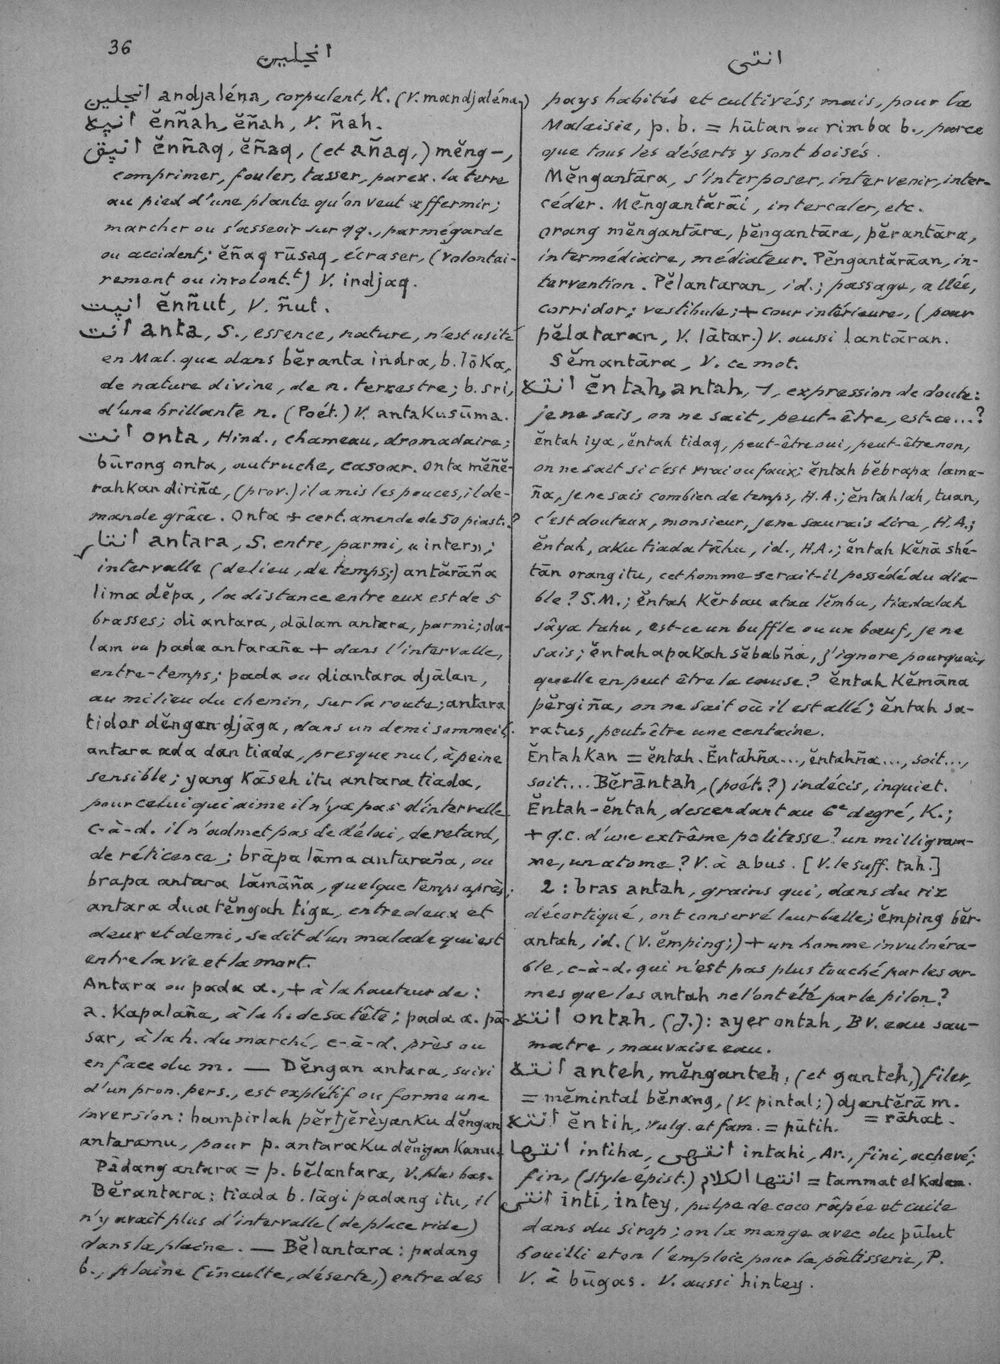 36
انجلين
انتي
انجلين andjaléna, corpulent, K. (V. mandjaléna,)
ĕnñah, ĕñah, V. ñah.
ĕnñaq, ĕñaq, (et añaq,) mĕng-,
comprimer, fouler, tasser, par ex. la terre
au pied d'une plante qu'on veut affermir;
marcher ou s'asseoir sur qq., par mégarde
ou accident; ĕñaq rūsaq, écraser, (volontai-
rement ou involont.t) V. indjaq.
ĕnñut, V. ñut.
انت anta, S., essence, nature, n'est usité
en Mal. que dans bĕranta indra, b. lōka,
de nature divine, de n. terrestre; b. sri,
d'une brillante n. (Poét.) V. antakusūma.
انت onta, Hind., chameau, dromadaire;
būrong onta, autruche, casoar. Onta mĕñĕ-
rahkan diriña, (prov.) il a mis les pouces, il de-
mande grâce. Onta + cert. amende de 50 piast.?
انتار antara, S. entre, parmi, « inter »;
intervalle (de lieu, de temps;) antărāña
lima dĕpa, la distance entre eux est de 5
brasses; di antara, dālam antara, parmi; da-
lam ou pada antaraña + dans l'intervalle,
entre-temps; pada ou diantara djālan,
au milieu du chemin, sur la route; antara
tidor dĕngan djāga, dans un demi sommeil;
antara ada dan tiada, presque nul, à peine
sensible; yang kāseh itu antara tiada,
pour celui qui aime il n'y a pas d'intervalle
c-à-d. il n'admet pas de délai, de retard,
de réticence; brāpa lāma antaraña, ou
brapa antara lămāña, quelque temps après;
antara dua tĕngah tiga, entre deux et
deux et demi, se dit d'un malade qui est
entre la vie et la mort.
Antara ou pada a., + à la hauteur de:
a. kapalaña, à la h. de sa tête; pada a. pā-
sar, à la h. du marché, c-à-d. près ou
en face du m. — Dĕngan antara, suivi
d'un pron. pers., est explétif ou forme une
inversion: hampirlah pĕrtjĕrèyanku dĕngan
antaramu, pour p. antaraku dĕngan kamu.
Pādang antara = p. bĕlantara, V. plus bas.
Bĕrantara: tiada b. lāgi padang itu, il
n'y avait plus d'intervalle (de place vide)
dans la plaine. — Bĕlantara: padang
b., plaine (inculte, déserte,) entre des
pays habités et cultivés; mais, pour la
Malaisie, p. b. = hūtan ou rimba b., parce
que tous les déserts y sont boisés.
Mĕngantāra, s'interposer, intervenir, inter-
céder. Mĕngantărāi, intercaler, etc.
Orang mĕngantāra, pĕngantāra, pĕrantāra,
intermédiaire, médiateur. Pĕngantărāan, in-
tervention. Pĕlantaran, id.; passage, allée,
corridor; vestibule; + cour intérieure, (pour
pĕlataran, V. lātar.) V. aussi lantāran.
Sĕmantāra, V. ce mot.
انته ĕntah, antah, 1, expression de doute:
je ne sais, on ne sait, peut-être, est-ce...?
ĕntah iya, ĕntah tidaq, peut-être oui, peut-être non,
on ne sait si c'est vrai ou faux; ĕntah bĕbrapa lama-
ña, je ne sais combien de temps, H.A.; ĕntahlah, tuan,
c'est douteux, monsieur, je ne saurais dire, H.A.;
ĕntah, aku tiada tāhu, id., H.A.; ĕntah kĕnā shé-
tān orang itu, cet homme serait-il possédé du dia-
ble? S.M.; ĕntah kĕrbau atau lĕmbu, tiadalah
sāya tahu, est-ce un buffle ou un bœuf, je ne
sais; ĕntah apakah sĕbabña, j'ignore pourquoi,
quelle en peut être la cause? ĕntah kĕmāna
pĕrgiña, on ne sait où il est allé; ĕntah sa-
ratus, peut-être une centaine.
Ĕntahkan = ĕntah. Ĕntahña..., ĕntahña..., soit...,
soit.... Bĕrāntah, (poét.?) indécis, inquiet.
Ĕntah-ĕntah, descendant au 6e degré, K.;
+ q.c. d'une extrême politesse? un milligram-
me, un atome? V. à abus. [V. le suff. tah.]
2: bras antah, grains qui, dans du riz
décortiqué, ont conservé leur balle; ĕmping bĕr-
antah, id. (V. ĕmping;) + un homme invulnéra-
ble, c-à-d. qui n'est pas plus touché par les ar-
mes que les antah ne l'ont été par le pilon?
انته ontah, (J.): ayer ontah, BV. eau sau-
matre, mauvaise eau.
انته anteh, mĕnganteh, (et ganteh,) filer,
= mĕmintal bĕnang, (V. pintal;) djantĕrā m.
= rāhat.
انته ĕntih, vulg. et fam. = pūtih.
انتها intiha, انتهى intahi, Ar., fini, achevé;
fin, (style épist.) انتها الكلام = tammat el kalam.
انتي inti, intey, pulpe de coco râpée et cuite
dans du sirop; on la mange avec du pūlut
bouilli et on l'emploie pour la pâtisserie, P.
V. à būgas. V. aussi hintey.